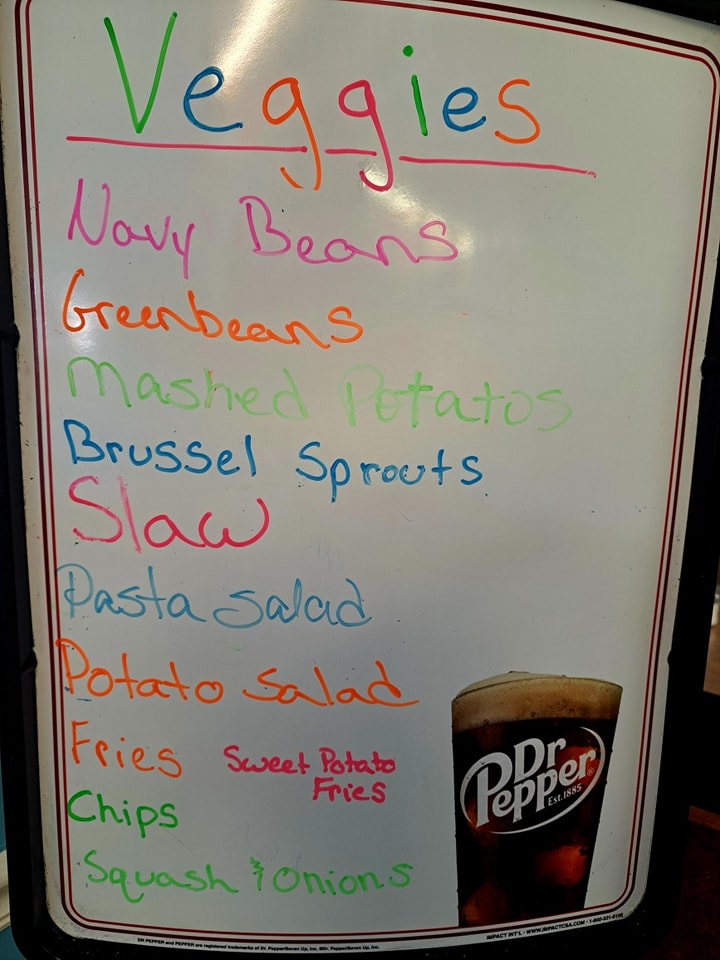 Veggies
Navy Beans
Greenbeans
Mashed Potatos
Brussel Sprouts
Slaw
Pasta Salad
Potato Salad
Fries
Sweet Potato
Fries
Chips
Squash & Onions
Dr
Pepper®
Est.1885
DR PEPPER and PEPPER are registered trademarks of Dr. Pepper/Seven Up, Inc. ©Dr. Pepper/Seven Up, Inc.
IMPACT INT'L · WWW.IMPACTCSA.COM ·